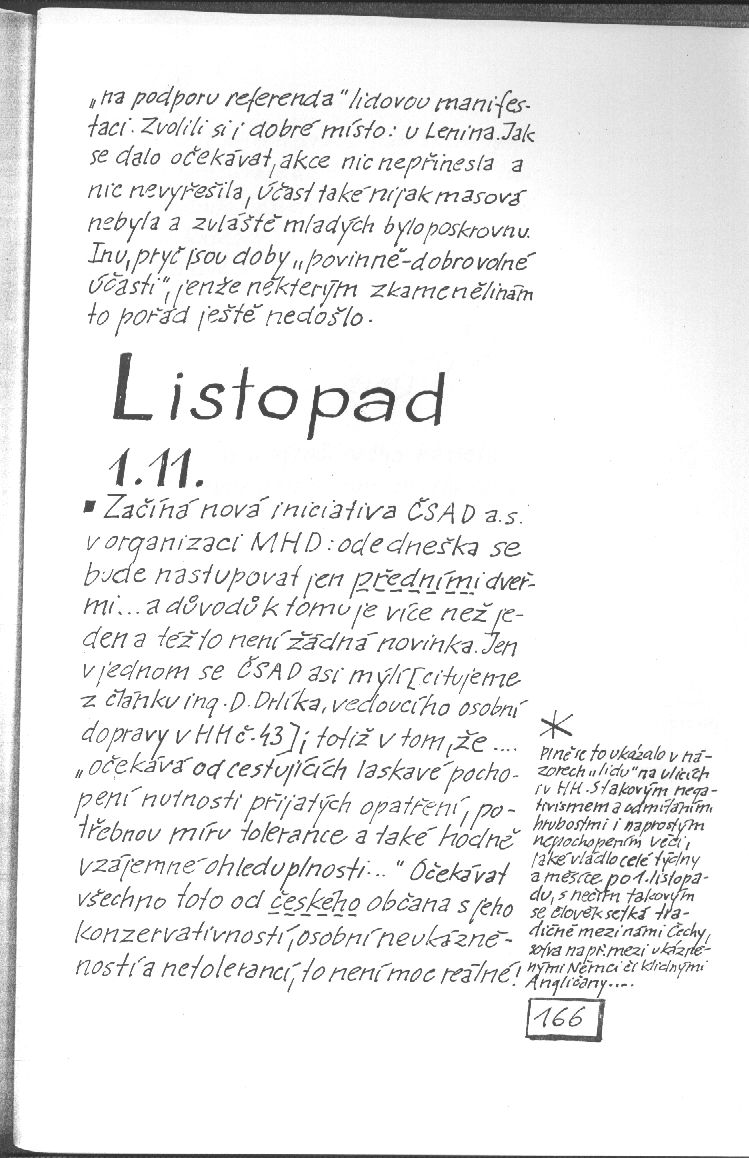 „na podporu referenda" lidovou manifes-
taci. Zvolili si i dobré místo: u Lenina. Jak
se dalo očekávat, akce nic nepřinesla a
nic nevyřešila, účast také nijak masová
nebyla a zvláště mladých bylo poskrovnu.
Inu, pryč jsou doby „povinně-dobrovolné
účasti", jenže některým zkamenělinám
to pořád ještě nedošlo.
Listopad
1.11.
▪ Začíná nová iniciativa ČSAD a.s.
v organizaci MHD: ode dneška se
bude nastupovat jen předními dveř-
mi... a důvodů k tomu je více než je-
den a též to není žádná novinka. Jen
v jednom se ČSAD asi mýlí [citujeme
z článku ing. D. Drlíka, vedoucího osobní
dopravy v HH č. 43]; totiž v tom, že ....
„očekává od cestujících laskavé pocho-
pení nutnosti přijatých opatření, po-
třebnou míru tolerance a také hodně
vzájemné ohleduplnosti..." Očekávat
všechno toto od českého občana s jeho
konzervativností, osobní neukázně-
ností a netolerancí, to není moc reálné!
*
Plně se to ukázalo v ná-
zorech „lidu" na ulicích
i v HH. S takovým nega-
tivismem a odmítáním,
hrubostmi i naprostým
nepochopením věcí,
jaké vládlo celé týdny
a měsíce po 1. listopa-
du, s nečím takovým
se člověk setká tra-
dičně mezi námi Čechy,
sotva např. mezi ukázně-
nými Němci či klidnými
Angličany....
166